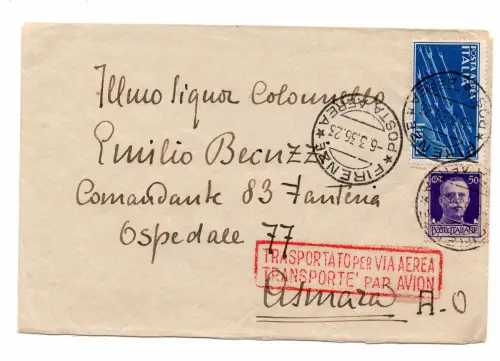 POSTA AEREA
ITALIA
Illmo Signor Colonnello
Emilio Becuzzi
Comandante 83 Fanteria
Ospedale 77
Asmara A-O
FIRENZE POSTA AEREA
-6.3.36.23
CENT. 50
POSTE ITALIANE
TRASPORTATO PER VIA AEREA
TRANSPORTÉ PAR AVION